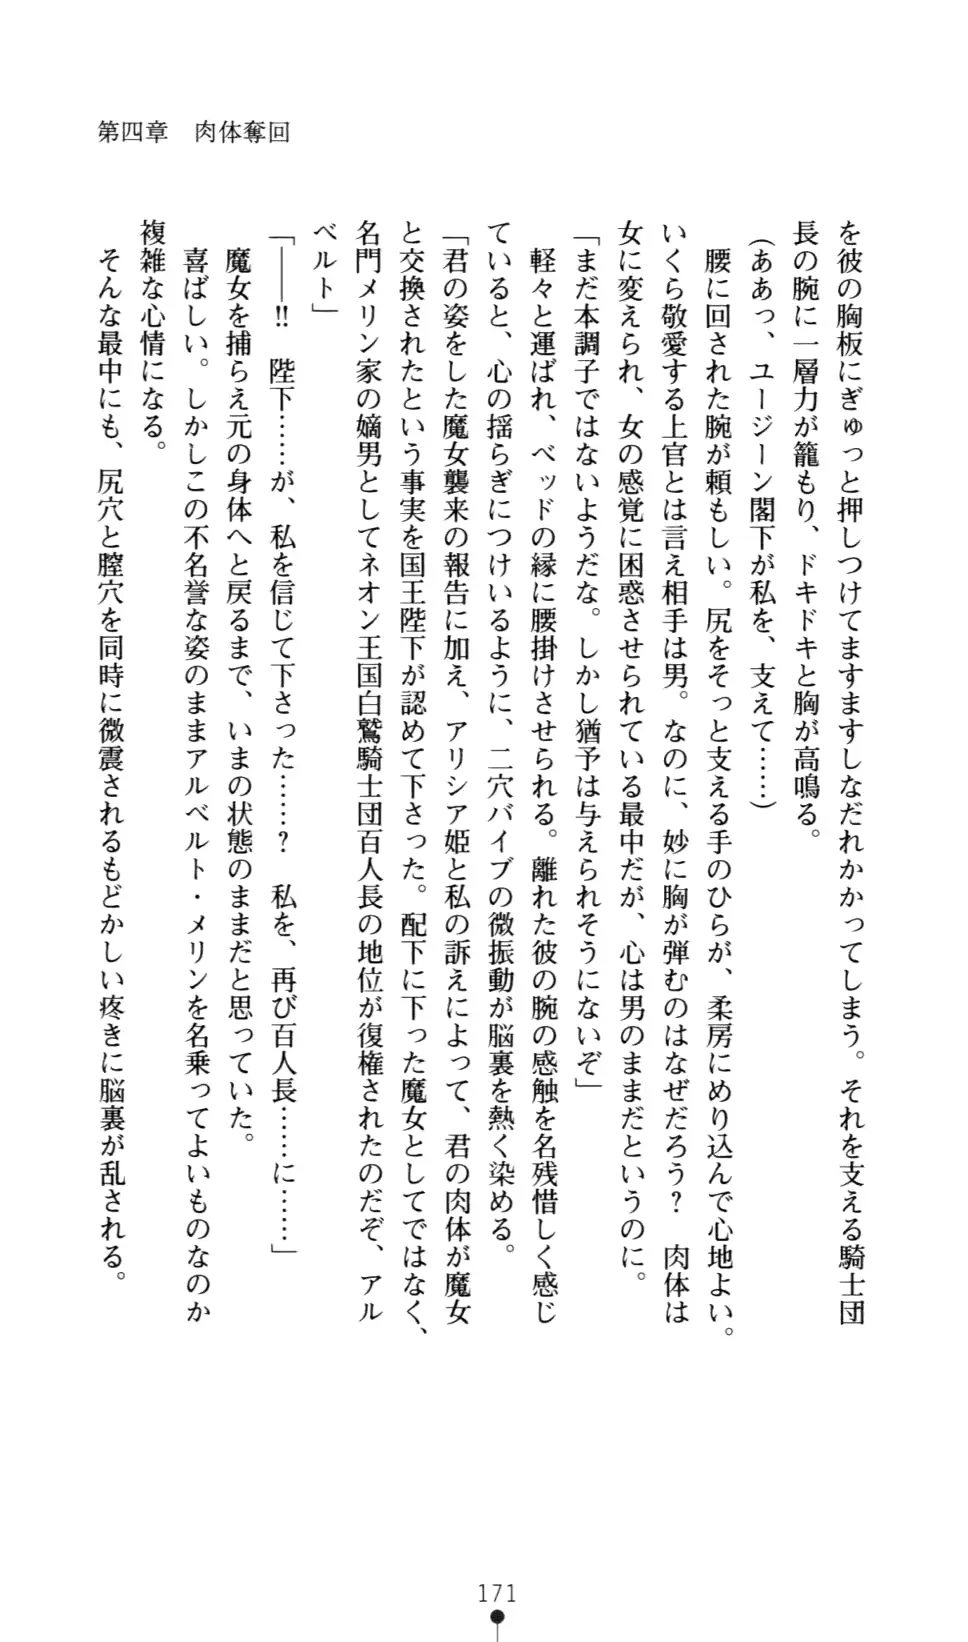 第四章　肉体奪回
を彼の胸板にぎゅっと押しつけてますますしなだれかかってしまう。それを支える騎士団
長の腕に一層力が籠もり、ドキドキと胸が高鳴る。
（ああっ、ユージーン閣下が私を、支えて……）
　腰に回された腕が頼もしい。尻をそっと支える手のひらが、柔房にめり込んで心地よい。
いくら敬愛する上官とは言え相手は男。なのに、妙に胸が弾むのはなぜだろう？　肉体は
女に変えられ、女の感覚に困惑させられている最中だが、心は男のままだというのに。
「まだ本調子ではないようだな。しかし猶予は与えられそうにないぞ」
　軽々と運ばれ、ベッドの縁に腰掛けさせられる。離れた彼の腕の感触を名残惜しく感じ
ていると、心の揺らぎにつけいるように、二穴バイブの微振動が脳裏を熱く染める。
「君の姿をした魔女襲来の報告に加え、アリシア姫と私の訴えによって、君の肉体が魔女
と交換されたという事実を国王陛下が認めて下さった。配下に下った魔女としてではなく、
名門メリン家の嫡男としてネオン王国白鷲騎士団百人長の地位が復権されたのだぞ、アル
ベルト」
「――!!　陛下……が、私を信じて下さった……？　私を、再び百人長……に……」
　魔女を捕らえ元の身体へと戻るまで、いまの状態のままだと思っていた。
　喜ばしい。しかしこの不名誉な姿のままアルベルト・メリンを名乗ってよいものなのか
複雑な心情になる。
　そんな最中にも、尻穴と膣穴を同時に微震されるもどかしい疼きに脳裏が乱される。
171